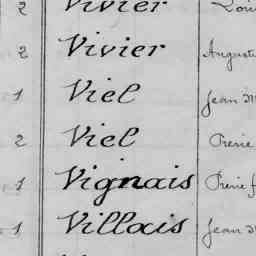 2 Vivier
2 Vivier August
1 Viel Jean M
2 Viel René
1 Vignais René f
1 Villais Jean M